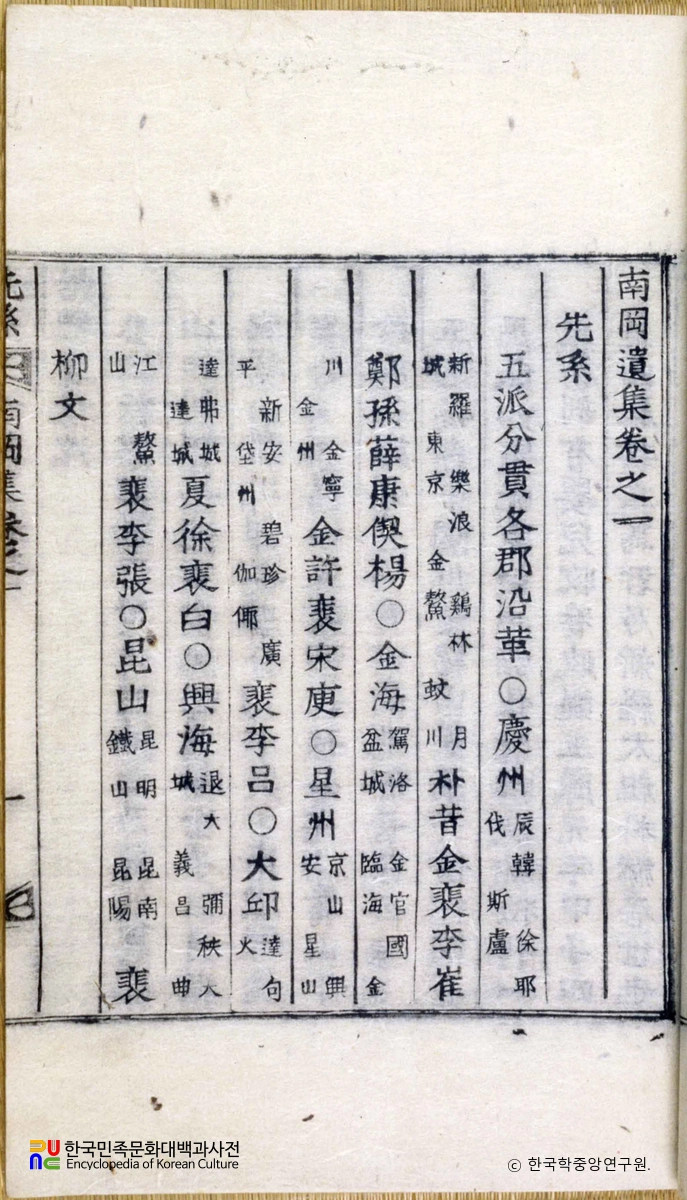 南岡遺集卷之一
先系
五派分貫各郡沿革○慶州 辰韓 徐耶 伐 斯盧
新羅 樂浪 鷄林 月 城 東京 金鰲 蚊川 朴昔金裵李崔
鄭孫薛康偰楊○金海 駕洛 金官國 盆城 臨海 金
川 金寧 金州 金許裵宋庾○星州 京山 興 安 星山
新安 碧珍 廣 平 垈州 伽倻 裵李呂○大邱 達句 火
達弗城 達城 夏徐裵白○興海 退大 彌秩大 城 義昌 曲
江 鰲 山 裵李張○昆山 昆明 昆南 鐵山 昆陽 裵
柳文
先系 南岡集卷之一 一
한국민족문화대백과사전
Encyclopedia of Korean Culture
ⓒ 한국학중앙연구원.